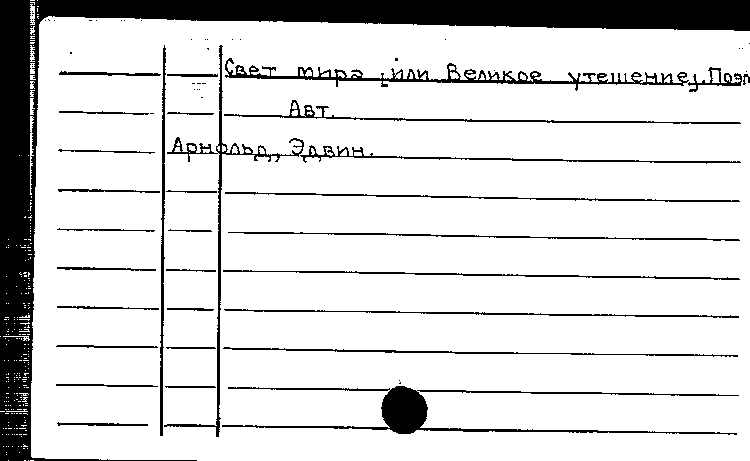 Свет мира [или Великое утешение]. Поэм
Авт.
Арнольд, Эдвин.